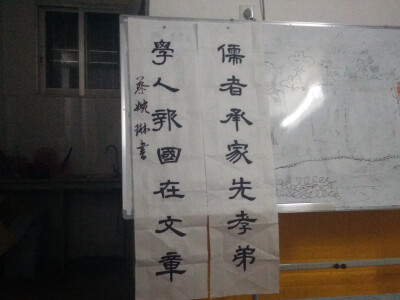 儒者承家先孝弟
學人報國在文章
蔡婉琳書